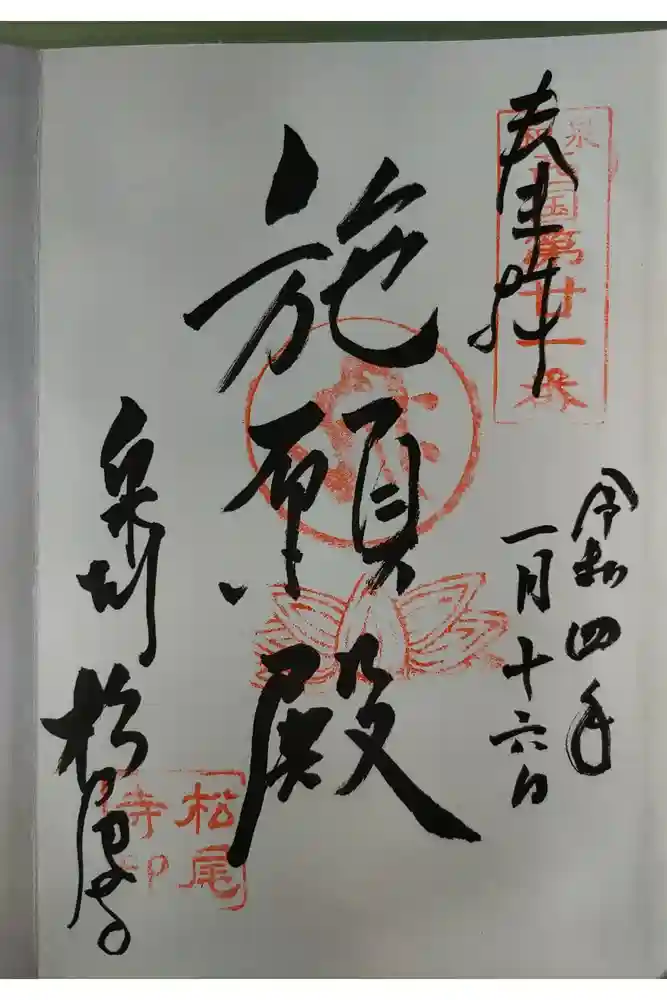 奉拝
和泉
西国
第廿一番
令和四年
一月十六日
施願殿
泉州
松尾寺
松尾
寺印